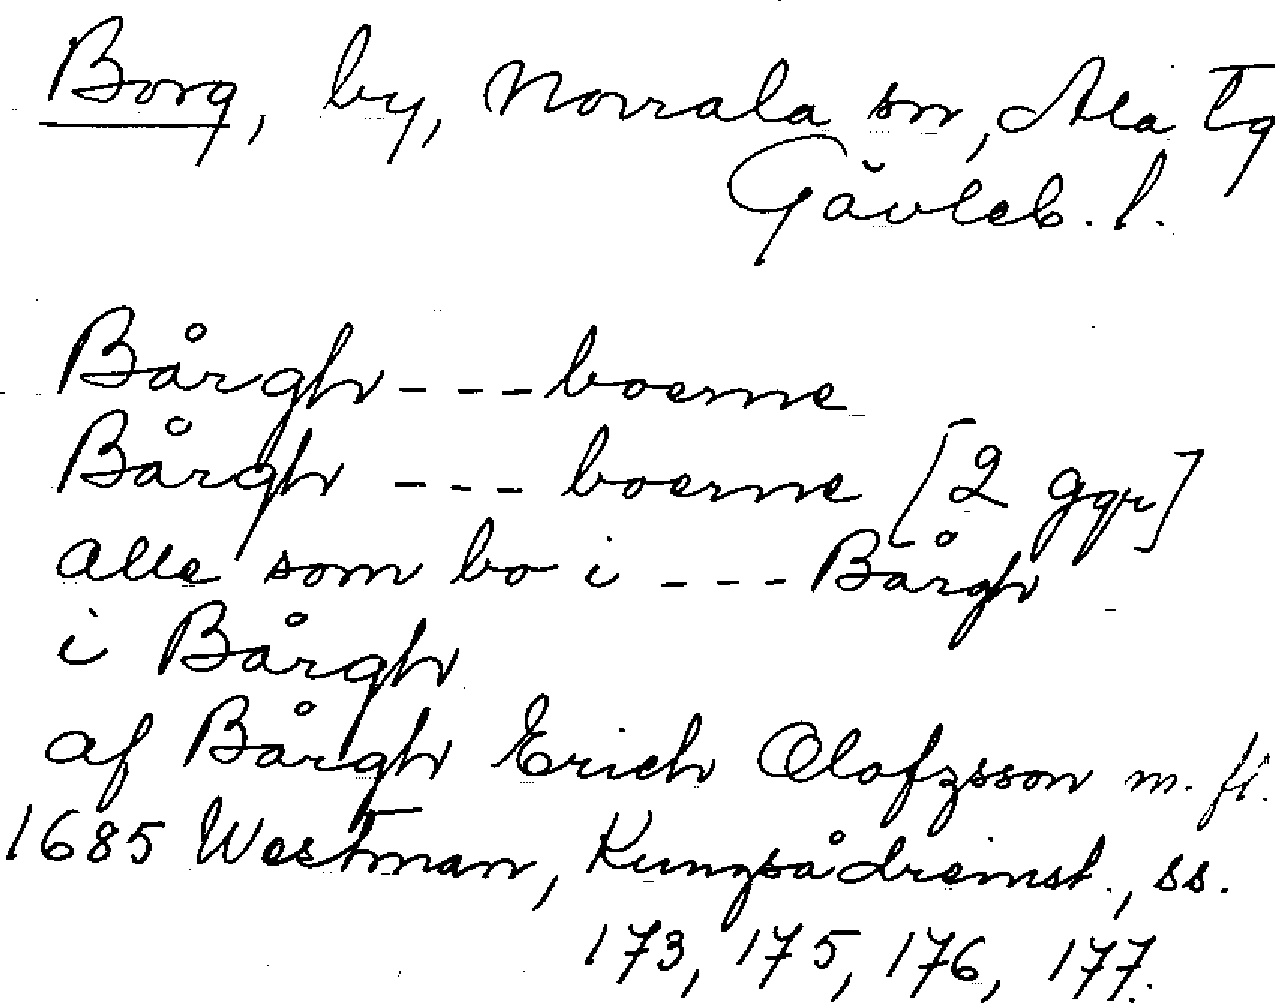 Borg, by, Norrala sn, Ala tg
Gävleb. l.
Bårgh - - - boerne
Bårgh - - - boerne [2 ggr]
alle som bo i - - - Bårgh
i Bårgh
af Bårgh Erich Olofzsson m. fl.
1685 Westman, Kungsådreinst., ss.
173, 175, 176, 177.